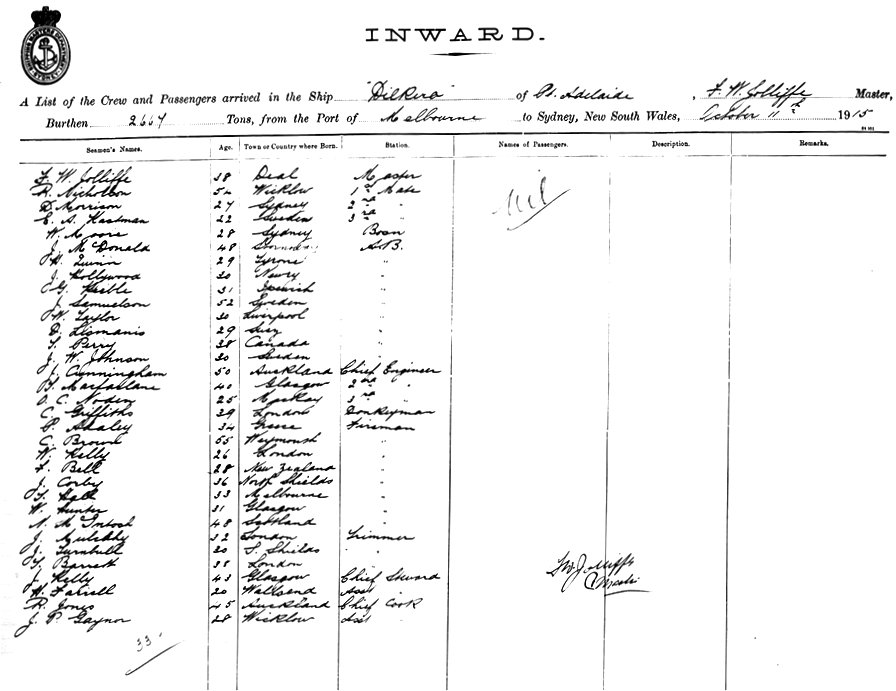 INWARD.
A List of the Crew and Passengers arrived in the Ship "Dilkera" of Pt. Adelaide, F. W. Jolliffe Master,
Burthen 2664 Tons, from the Port of Melbourne to Sydney, New South Wales, October 11th 1915
Seamen's Names. Age. Town or Country where Born. Station. Names of Passengers. Description. Remarks.
F. W. Jolliffe 58 Deal Master
R. Nicholson 54 Wicklow 1st Mate Nil
D. Morrison 27 Sydney 2nd "
E. A. Hastman 22 Sweden 3rd "
W. Moore 28 Sydney Bosn
J. McDonald 48 A.B.
H. Quinn 29 Tyrone "
J. Hollywood 30 Newry "
G. Keeble 31 Ipswich "
J. Samuelson 52 Sweden "
W. Taylor 30 Liverpool "
D. Lismanis 29 "
T. Perry 38 Canada "
J. W. Johnson 30 Sweden "
J. Cunningham 50 Auckland Chief Engineer
Macfarlane 40 Glasgow 2nd "
O. C. Noden 25 MacKay 3rd "
C. Griffiths 39 London Donkeyman
P. 34 Greece Fireman
C. Brown 55 Weymouth "
W. Kelly 26 London "
F. Bell 28 New Zealand "
J. Corby 36 North Shields "
T. Hall 33 Melbourne "
W. Hunter 31 Glasgow "
N. McIntosh 48 Scotland "
J. Mulcahy 32 London Trimmer
J. Turnbull 20 S. Shields "
T. Barrett 38 London "
J. Kelly 43 Glasgow Chief Steward
H. Farrell 20 Wallsend Asst
R. Jones 45 Auckland Chief Cook
J. P. Gaynor 28 Wicklow Asst
FW Jolliffe
Master
33